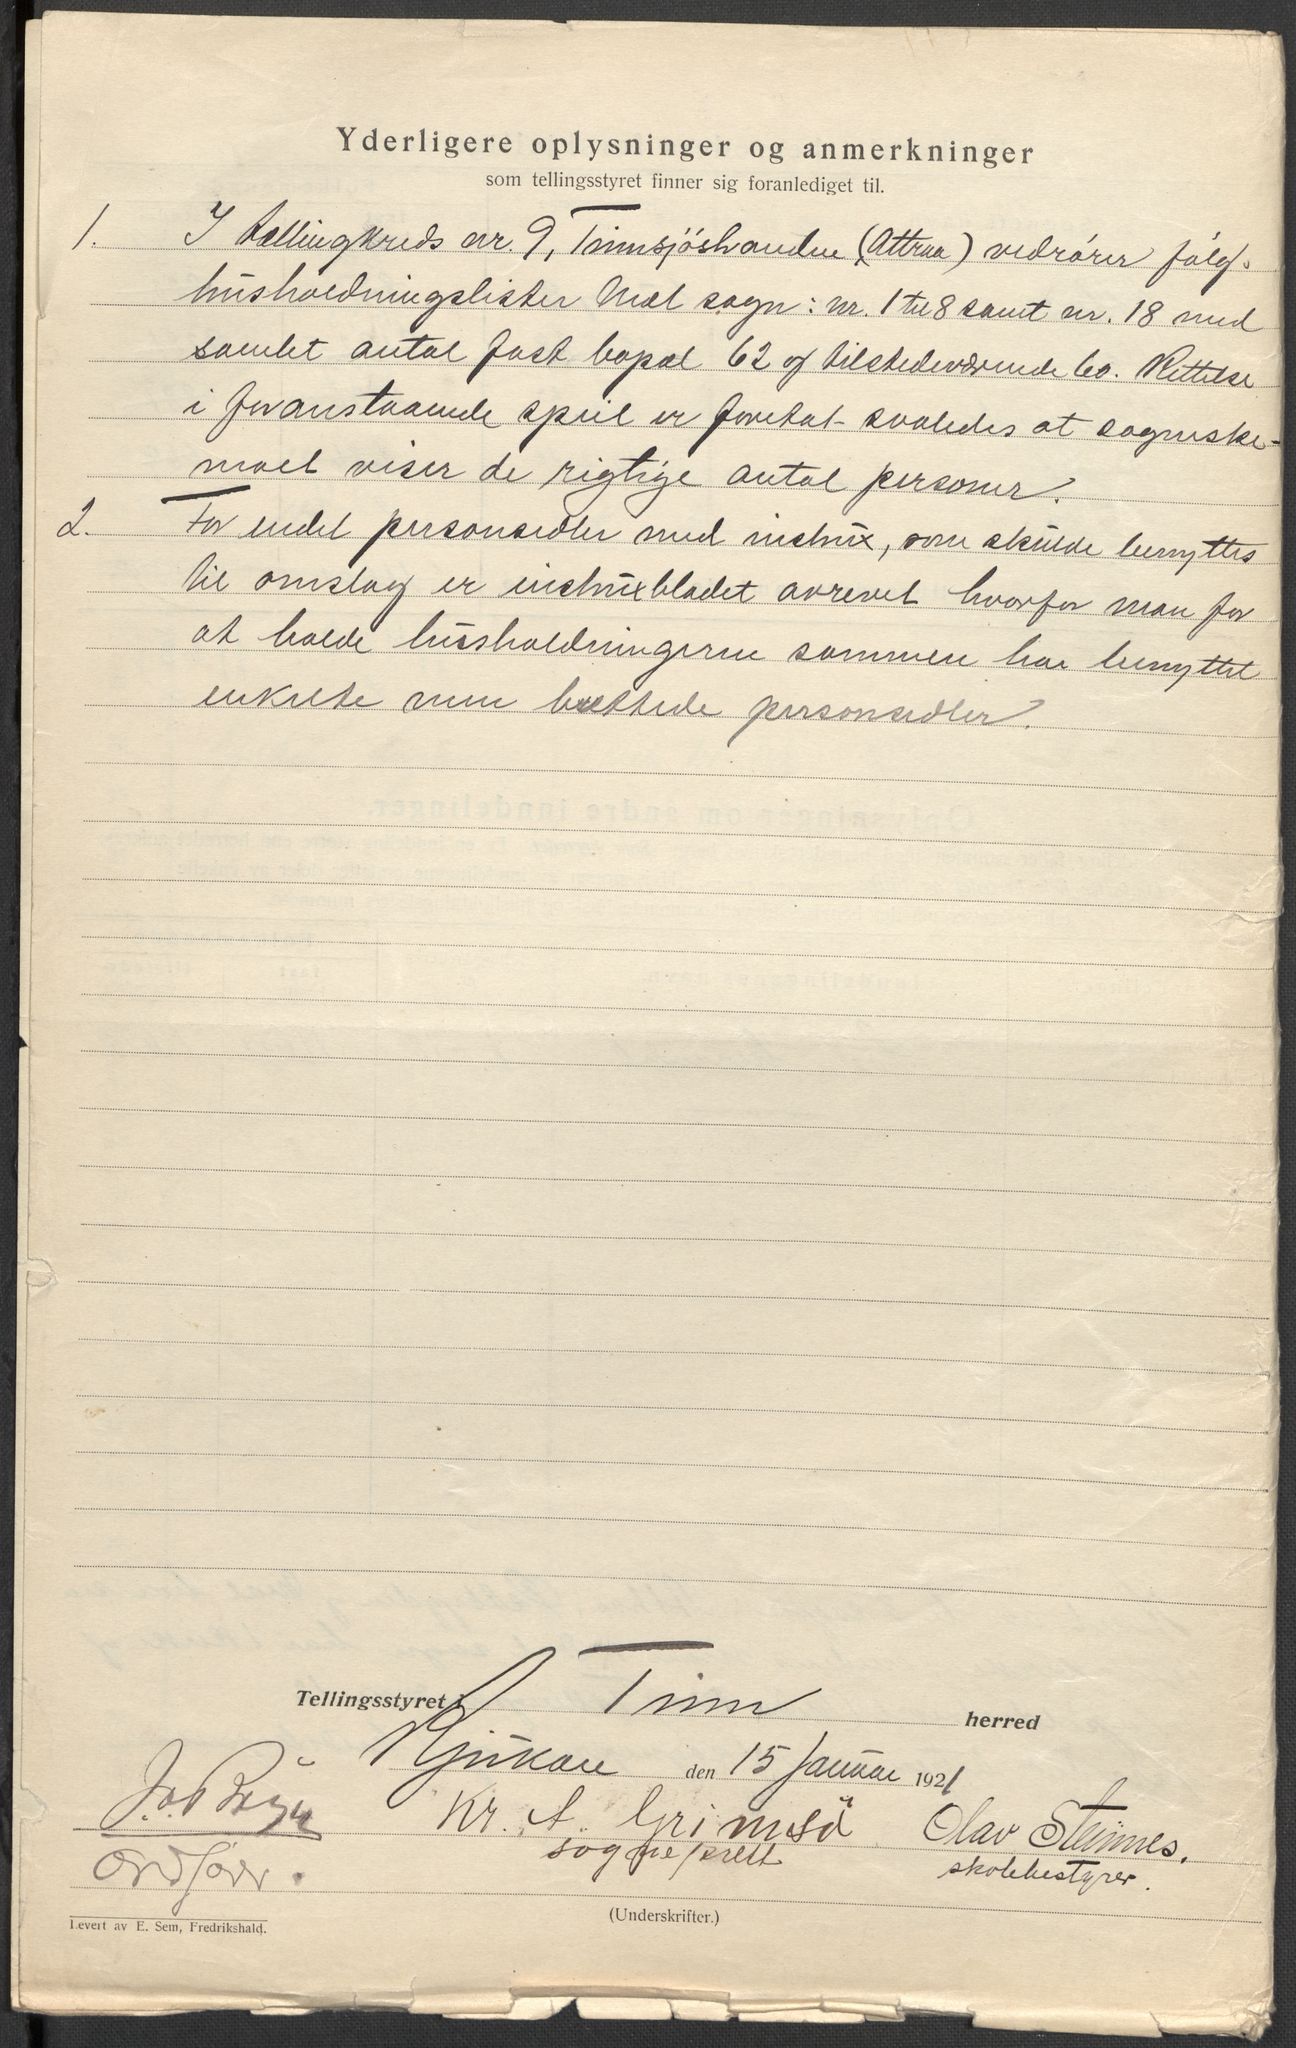 Yderligere oplysninger og anmerkninger
som tellingsstyret finner sig foranlediget til.
1. I tællingkreds nr. 9, Tinnsjöstranden (Attraa) vedrörer følg.
husholdningslister Mæl sogn: nr. 1 til 8 samt nr. 18 med
samlet antal fast bopæl 62 og tilstedeværende 60. Rettelse
i foranstaaende speil er foretat saaledes at sogneske-
maet viser de rigtige antal personer.
2. For endel personsedler med instrux, som skülde benyttes
til omslag er instrüxbladet avrevet hvorfor man for
at holde hüsholdningerne sammen har benyttet
enkelte rene personsedler.
Tellingsstyret i Tinn herred
Rjükan den 15 Januar 1921
Kr. A. Grimsö Olav Steinnes.
sogneprest skolebestyrer.
ordfører.
(Underskrifter.)
Levert av E. Sem, Fredrikshald.